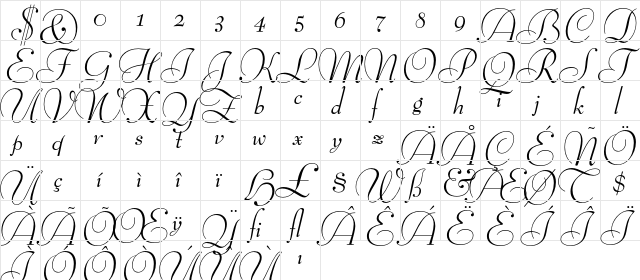 $ & 0 1 2 3 4 5 6 7 8 9 A B C D
E F G H I J K L M N O P Q R S T
U V W X Y Z b c d f g h i j k l
p q r s t v w x y z Ä Å Ç É Ñ Ö
Ü ç í ì î ï £ § W ß & Æ Ø $
À Ã Õ Œ ÿ Ÿ fi fl Â Ê Á Ë È Í Î Ï
Ì Ó Ô Ò Ú Û Ù ı